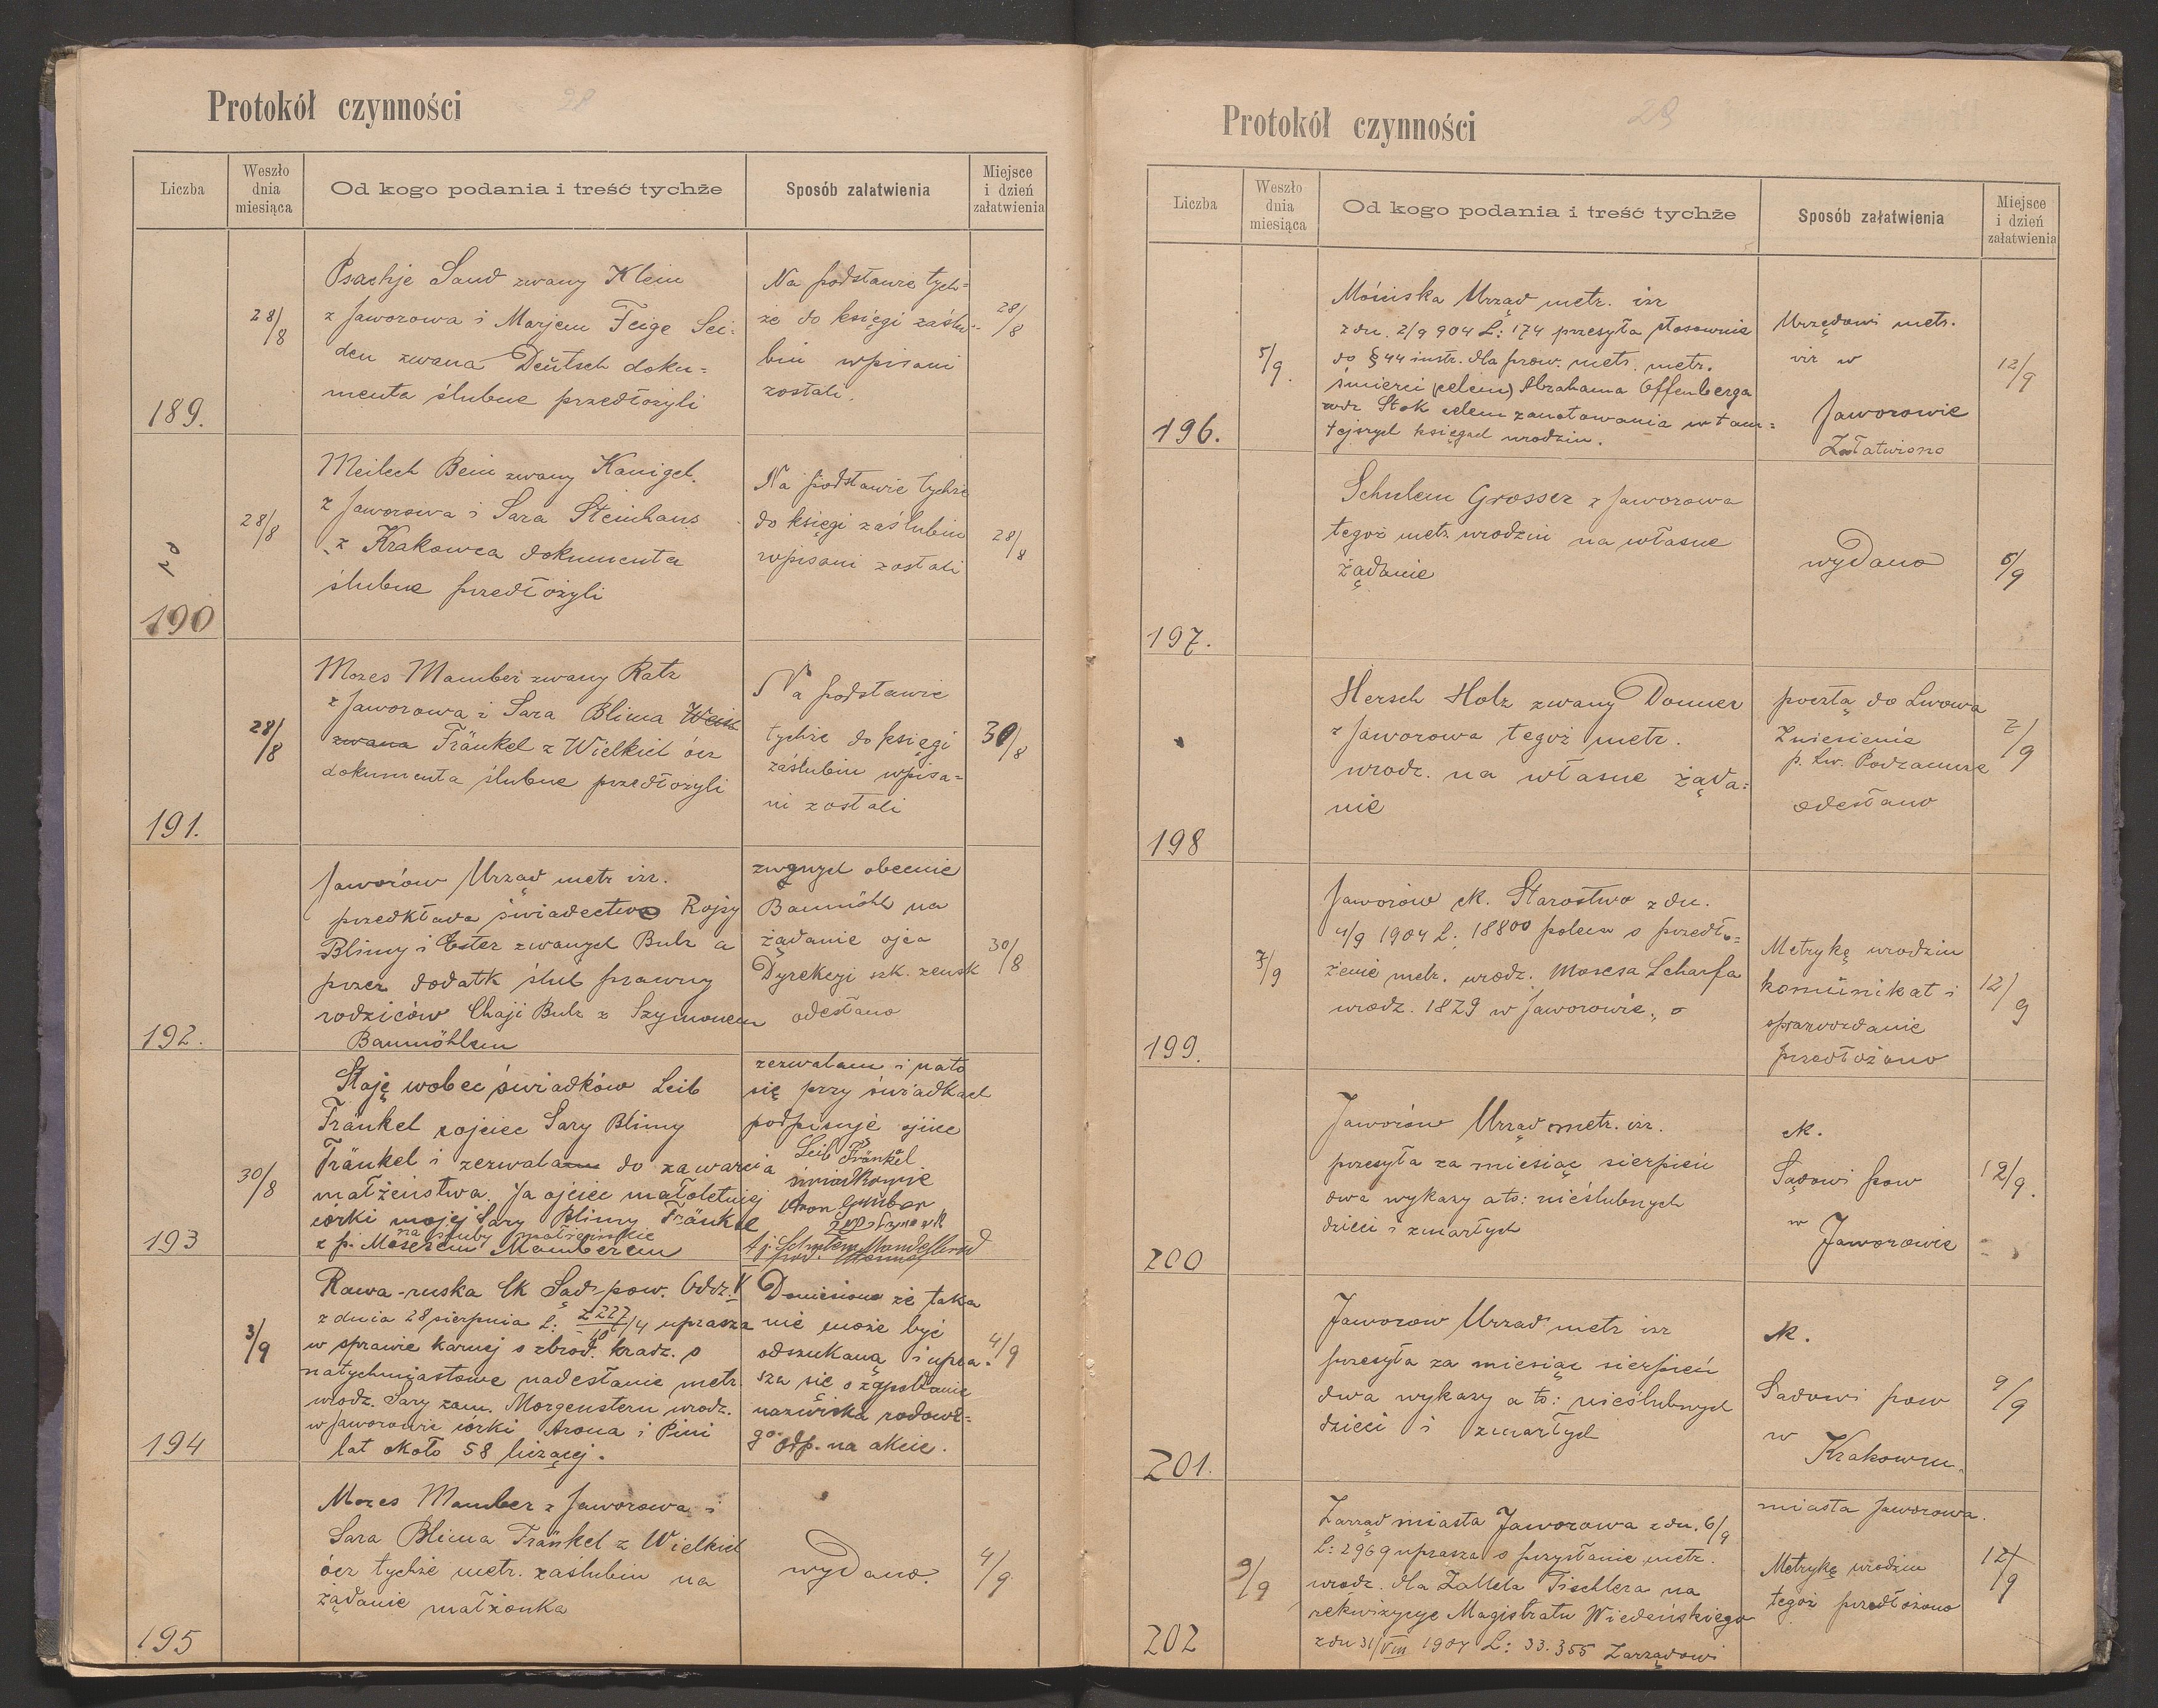 Protokół czynności
28
Liczba
Weszło
dnia
miesiąca
Od kogo podania i treść tychże
Sposób załatwienia
Miejsce
i dzień
załatwienia
189.
28/8
Psachje Sand zwany Klein
z Jaworowa i Marjem Feige Sei-
den zwana Deutsch doku=
menta ślubne przedłożyli
Na podstawie tych=
że do księgi zaślu-
bin wpisani
zostali.
28/8
190
28/8
Meilech Bein zwany Kanigel.
z Jaworowa i Sara Steinhaus
z Krakowca dokumenta
ślubne przedłożyli
Na podstawie tychże
do księgi zaślubin
wpisani zostali
28/8
191.
28/8
Mozes Mamber zwany Ratz
z Jaworowa i Sara Blima
zwana Fränkel z Wielkich ócz
dokumenta ślubne przedłożyli
Na podstawie
tychże do księgi
zaślubin wpisa=
ni zostali
30/8
192.
Jaworów Urząd metr izr.
przedkłada świadectwo Rojzy
Blimy i Ester zwanych Bulz a
przez dodatk ślub prawny
rodziców Chaji Bulz z Szymonem
Baumöhlem
zwanych obecnie
Baumöhl na
żądanie ojca
Dyrekcyi szk. żeńsk
odesłano
30/8
193
30/8
Staję wobec świadków Leib
Fränkel ojciec Sary Blimy
Fränkel i zezwalam do zawarcia
małżeństwa. Ja ojciec małoletniej
córki mojej Sary Blimy Fränkel
na śluby małżeńskie
z p. Mosesem Mamberem
zezwalam i na to
się przy świadkach
podpisuję ojciec
Leib Fränkel
świadkowie
Aron
194
3/9
Rawa-ruska Ck Sąd pow. Oddz. V
z dnia 28 sierpnia L: uprasza
w sprawie karnej o zbrod. kradz. o
natychmiastowe nadesłanie metr.
urodz. Sary zam. Morgenstern urodz.
w Jaworowie córki Arona i Pini
lat około 58 liczącej.
Doniesiono że taka
nie może być
odszukaną i upra-
sza się o zapodanie
nazwiska rodowe=
go odp. na akcie.
4/9
195
Mozes Mamber z Jaworowa i
Sara Blima Fränkel z Wielkich
ócz tychże metr. zaślubin na
żądanie małżonka
wydano.
4/9
Protokół czynności
29
Liczba
Weszło
dnia
miesiąca
Od kogo podania i treść tychże
Sposób załatwienia
Miejsce
i dzień
załatwienia
196.
5/9.
Mościska Urząd metr. izr
z dn. 2/9 904 L: 174 przesyła stosownie
do § 44 instr. dla prow. metr. metr.
śmierci (celem) Abrahama Offenberga
celem zanotowania w tam=
tejszych księgach urodzin.
Urzędowi metr.
izr w
Jaworowie
Załatwiono
12/9
197.
Schulem Grosser z Jaworowa
tegoż metr. urodzin na własne
żądanie
wydano
5/9
198
Hersch Holz zwany Donner
z Jaworowa tegoż metr.
urodz. na własne żąda=
nie
pocztą do Lwowa
Zniesienie
p. Lw. Podzamcze
odesłano
2/9
199.
7/9
Jaworów ck. Starostwo z dn.
4/9 1904 L: 18800 poleca o przedło=
żenie metr. urodz. Mosesa Scharfa
urodz. 1829 w Jaworowie
Metrykę urodzin
komunikat i
sprawozdanie
przedłożono
12/9
200
Jaworów Urząd metr. izr.
przesyła za miesiąc sierpień
dwa wykazy a to: nieślubnych
dzieci i zmarłych
ck.
Sądowi pow
w
Jaworowie
12/9.
201.
Jaworow Urząd metr izr
przesyła za miesiąc sierpień
dwa wykazy a to: nieślubnych
dzieci i zmarłych
ck.
Sadowi pow
w
Krakowcu.
9/9
202
9/9
Zarząd miasta Jaworowa z dn. 6/9
L: 2969 uprasza o przysłanie metr.
urodz. dla Zallela Tischlera na
rekwizycye Magistratu Wiedeńskiego
z dn 31/VIII 1904 L: 33.355 Zarządowi
miasta Jaworowa.
Metrykę urodzin
tegoż przedłożono
12/9